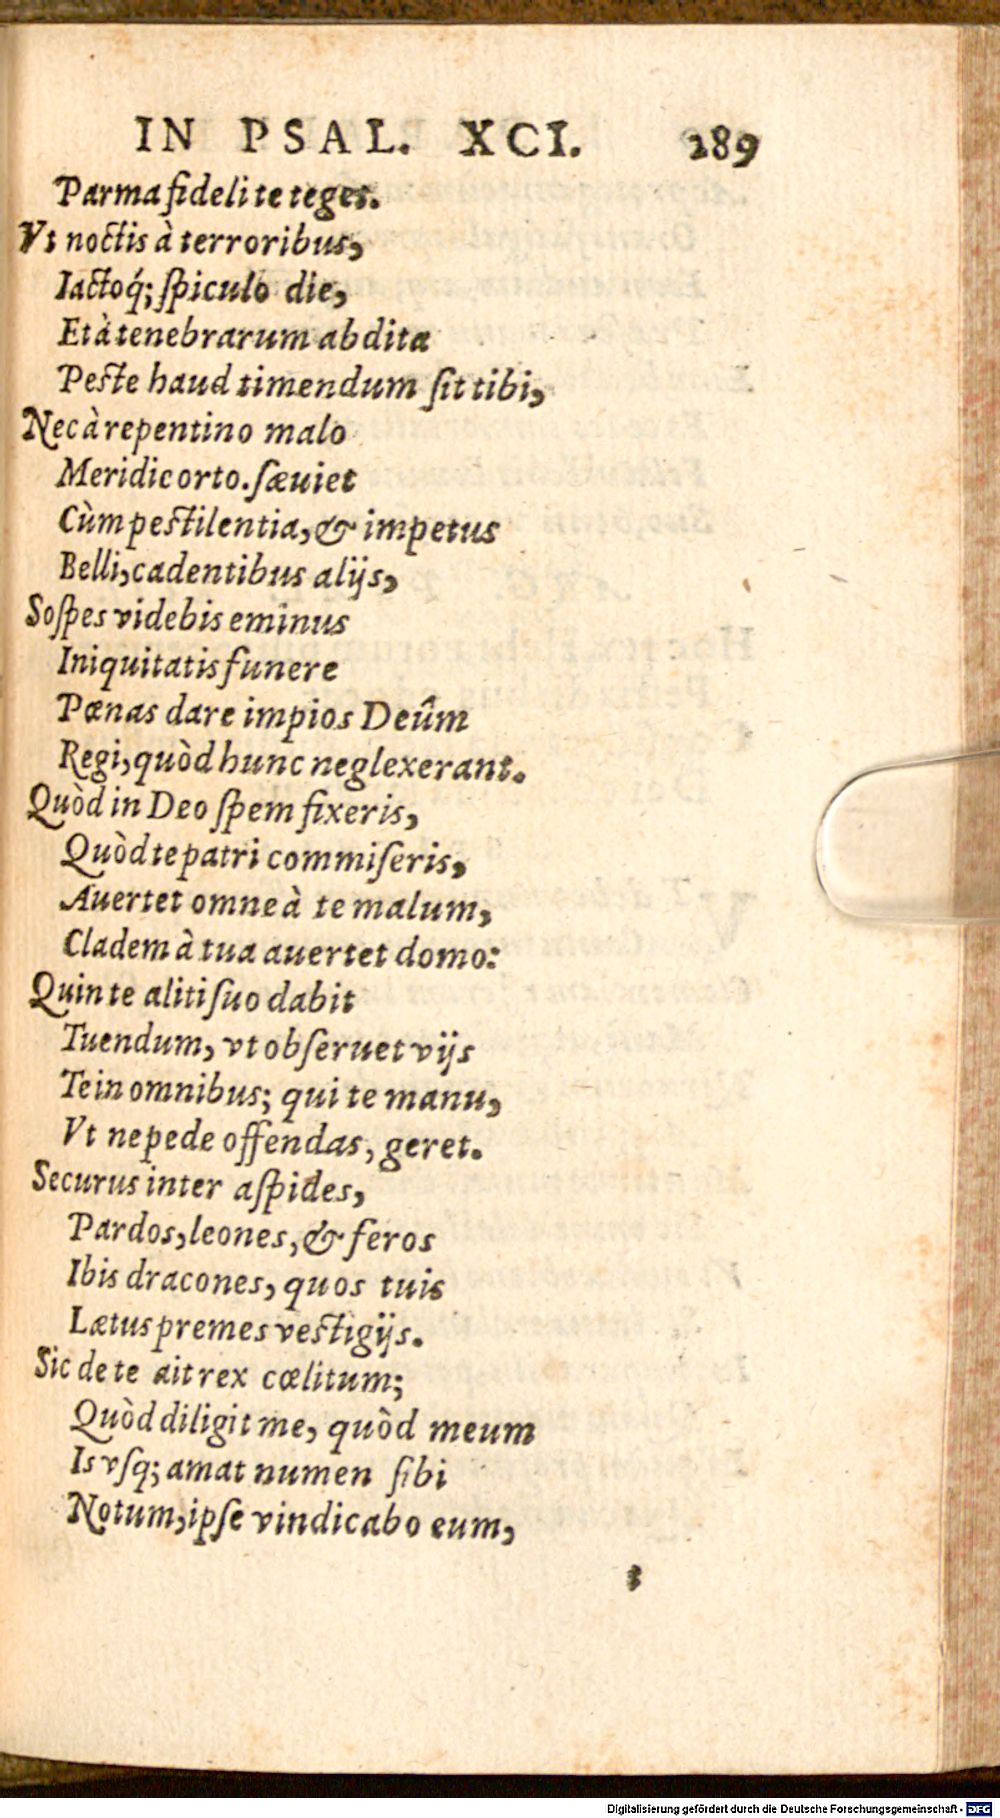 IN PSAL. XCI. 289
Parma fideli te teget.
Vt noctis à terroribus,
Iactoq́; ſpiculo die,
Et à tenebrarum abdita
Peste haud timendum ſit tibi,
Nec à repentino malo
Meridie orto. ſæuiet
Cùm pestilentia, & impetus
Belli, cadentibus alijs,
Soſpes videbis eminus
Iniquitatis funere
Pœnas dare impios Deûm
Regi, quòd hunc neglexerant.
Quòd in Deo ſpem fixeris,
Quòd te patri commiſeris,
Auertet omne à te malum,
Cladem à tua auertet domo:
Quin te aliti ſuo dabit
Tuendum, vt obſeruet vijs
Te in omnibus; qui te manu,
Vt ne pede offendas, geret.
Securus inter aſpides,
Pardos, leones, & feros
Ibis dracones, quos tuis
Lætus premes vestigijs.
Sic de te ait rex cœlitum;
Quòd diligit me, quòd meum
Is vſq; amat numen ſibi
Notum, ipſe vindicabo eum,
Digitalisierung gefördert durch die Deutsche Forschungsgemeinschaft - DFG